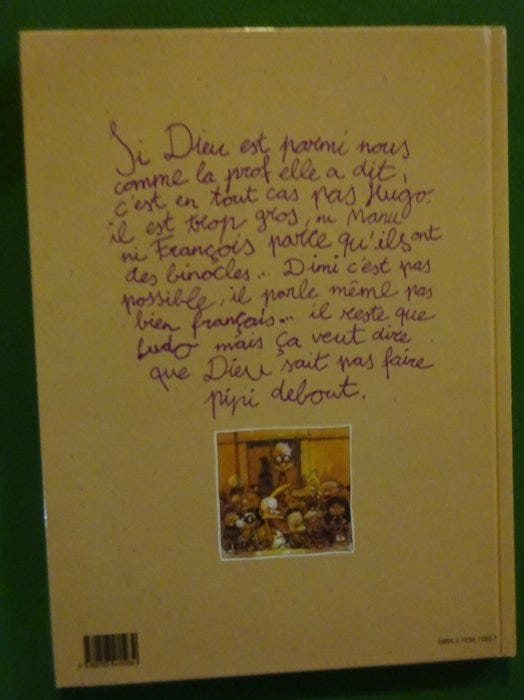 Si Dieu est parmi nous
comme la prof elle a dit,
c'est en tout cas pas Hugo.
il est trop gros, ni Manu
ni François parce qu'ils ont
des binocles... Dimi c'est pas
possible, il parle même pas
bien français... il reste que
Ludo mais ça veut dire
que Dieu sait pas faire
pipi debout.